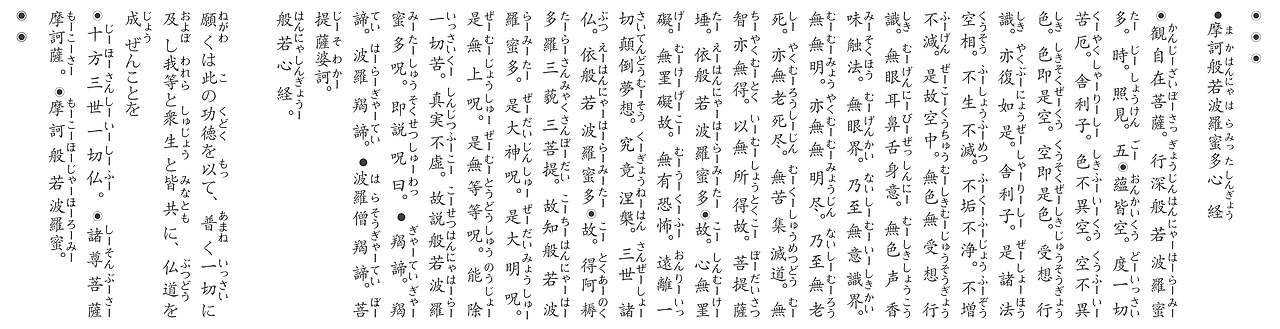 ◉ ◉ ◉
●摩訶般若波羅蜜多心 経
◉観自在菩薩。行深般若 波羅蜜
多時。照見。五◉蘊皆空。度一切
苦厄。舎利子。色不異空。空不異
色。色即是空。空即是色。受想 行
識。亦復如是。舎利子。是諸 法
空相。不生不滅。不垢不浄。不増
不減。是故空中。無色無 受想 行
識。無眼耳鼻舌身意。無色声 香
味触法。無眼界。乃至無意識界。
無無明。亦無無明尽。乃至無老
死。亦無老死尽。無苦集滅道。無
智亦無得。以無所得故。菩提薩
埵。依般若波羅蜜多◉故。心無罣
礙。無罣礙故。無有恐怖。遠離一
切顛倒夢想。究竟涅槃。三世諸
仏。依般若波羅蜜多◉故。得阿耨
多羅三藐三菩提。故知般若 波
羅蜜多。是大神呪。是大明呪。
是無上呪。是無等等呪。能 除
一切苦。真実不虚。故説般若波羅
蜜多呪。即説呪曰。●羯諦。羯
諦。波羅羯諦。●波羅僧羯諦。菩
提薩婆訶。
般若心経。
願くは此の功徳を以て、普く一切に
及ぼし我等と衆生と皆共に、仏道を
成ぜんことを
◉十方三世一切仏。◉諸尊菩薩
摩訶薩。◉摩訶般若波羅蜜。
◉ ◉